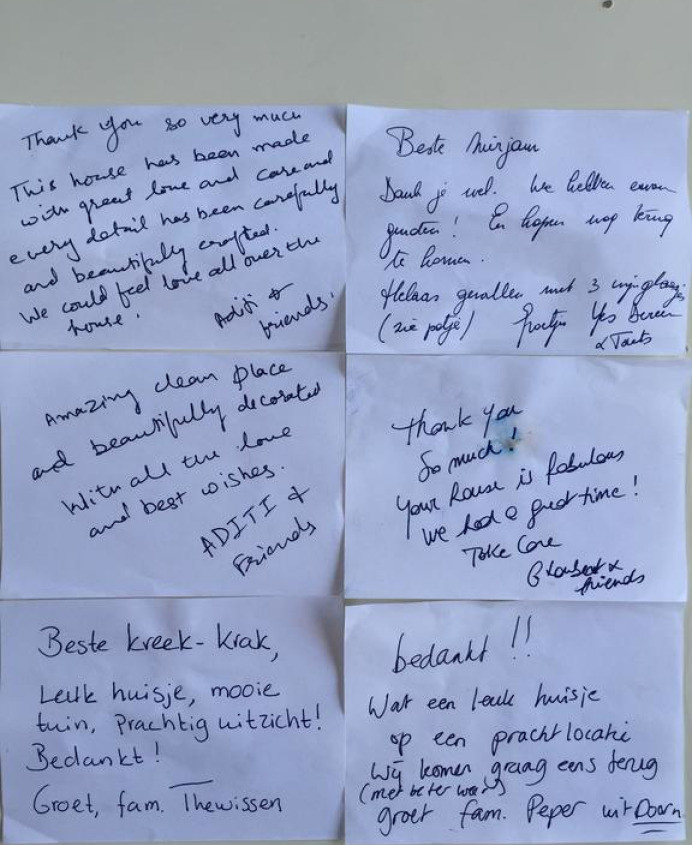 Thank you so very much
This house has been made
with great love and care and
every detail has been carefully
and beautifully crafted.
We could feel love all over the
house!
Aditi &
friends!
Beste Mirjam
Dank je wel. We hebben
genoten! En hopen nog terug
te komen.
Helaas gevallen met 3 wijnglaasjes
(zie potje) Groetjes
&
Amazing clean place
and beautifully decorated
With all the love
and best wishes.
ADITI &
Friends
Thank you
So much!
Your house is fabulous
We had a great time!
Take Care
&
friends
Beste kreek-krak,
Leuk huisje, mooie
tuin, Prachtig uitzicht!
Bedankt!
Groet, fam. Thewissen
bedankt!!
Wat een leuk huisje
op een prachtlocatie
Wij komen graag eens terug
(met beter weer)
groet fam. Peper uit Doorn